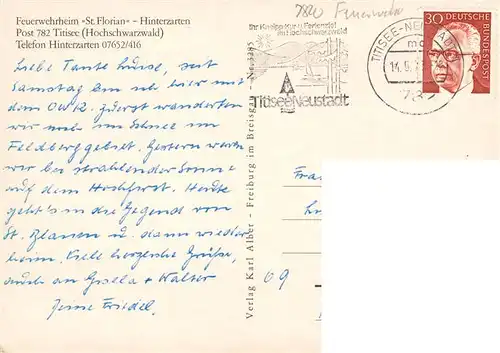 Feuerwehrheim »St. Florian« - Hinterzarten
Post 782 Titisee (Hochschwarzwald)
Telefon Hinterzarten 07652/416
Liebe Tante Luise, seit
Samstag bin ich hier mit
dem OWK. Zuerst wanderten
wir noch im Schnee im
Feldberggebiet. Gestern waren
wir bei strahlender Sonne
auf dem Hochfirst. Heute
geht's in die Gegend von
St. Blasien u. dann wieder
heim. Viele herzliche Grüße,
auch an Gisella + Walter
Deine Friedel.
Verlag Karl Alber - Freiburg im Breisgau
780 Feuerwehr
Ihr Kneipp-Kur-u. Ferienziel
im Hochschwarzwald
Titisee Neustadt
TITISEE-NEU
782
30 DEUTSCHE BUNDESPOST
Fra
69